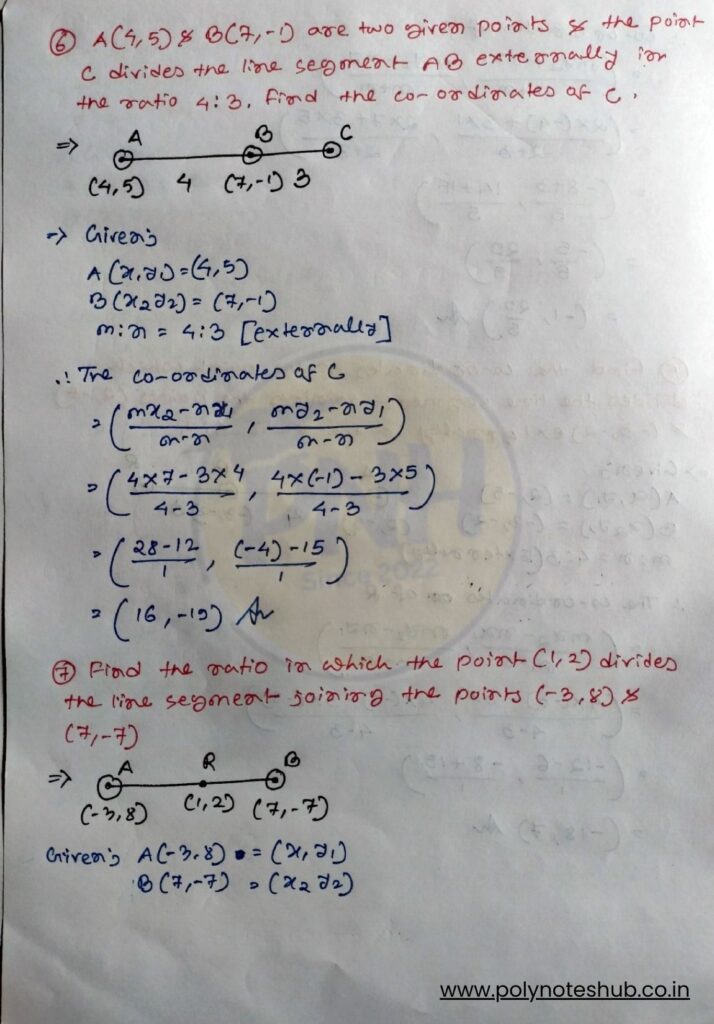 ⑥ A(4,5) & B(7,-1) are two given points & the point
C divides the line segment AB externally in
the ratio 4:3. Find the co-ordinates of C.
⇒ A B C
(4,5) 4 (7,-1) 3
→ Given;
A(x₁y₁)=(4,5)
B(x₂y₂)= (7,-1)
m:n = 4:3 [externally]
∴ The co-ordinates of C
= (mx₂-nx₁/m-n , my₂-ny₁/m-n)
= (4×7-3×4/4-3 , 4×(-1)-3×5/4-3)
= (28-12/1 , (-4)-15/1)
= (16,-19) An
Since 2022
⑦ Find the ratio in which the point (1,2) divides
the line segment joining the points (-3,8) &
(7,-7)
⇒ A R B
(-3,8) (1,2) (7,-7)
Given; A(-3,8) = (x₁y₁)
B(7,-7) = (x₂y₂)
www.polynoteshub.co.in